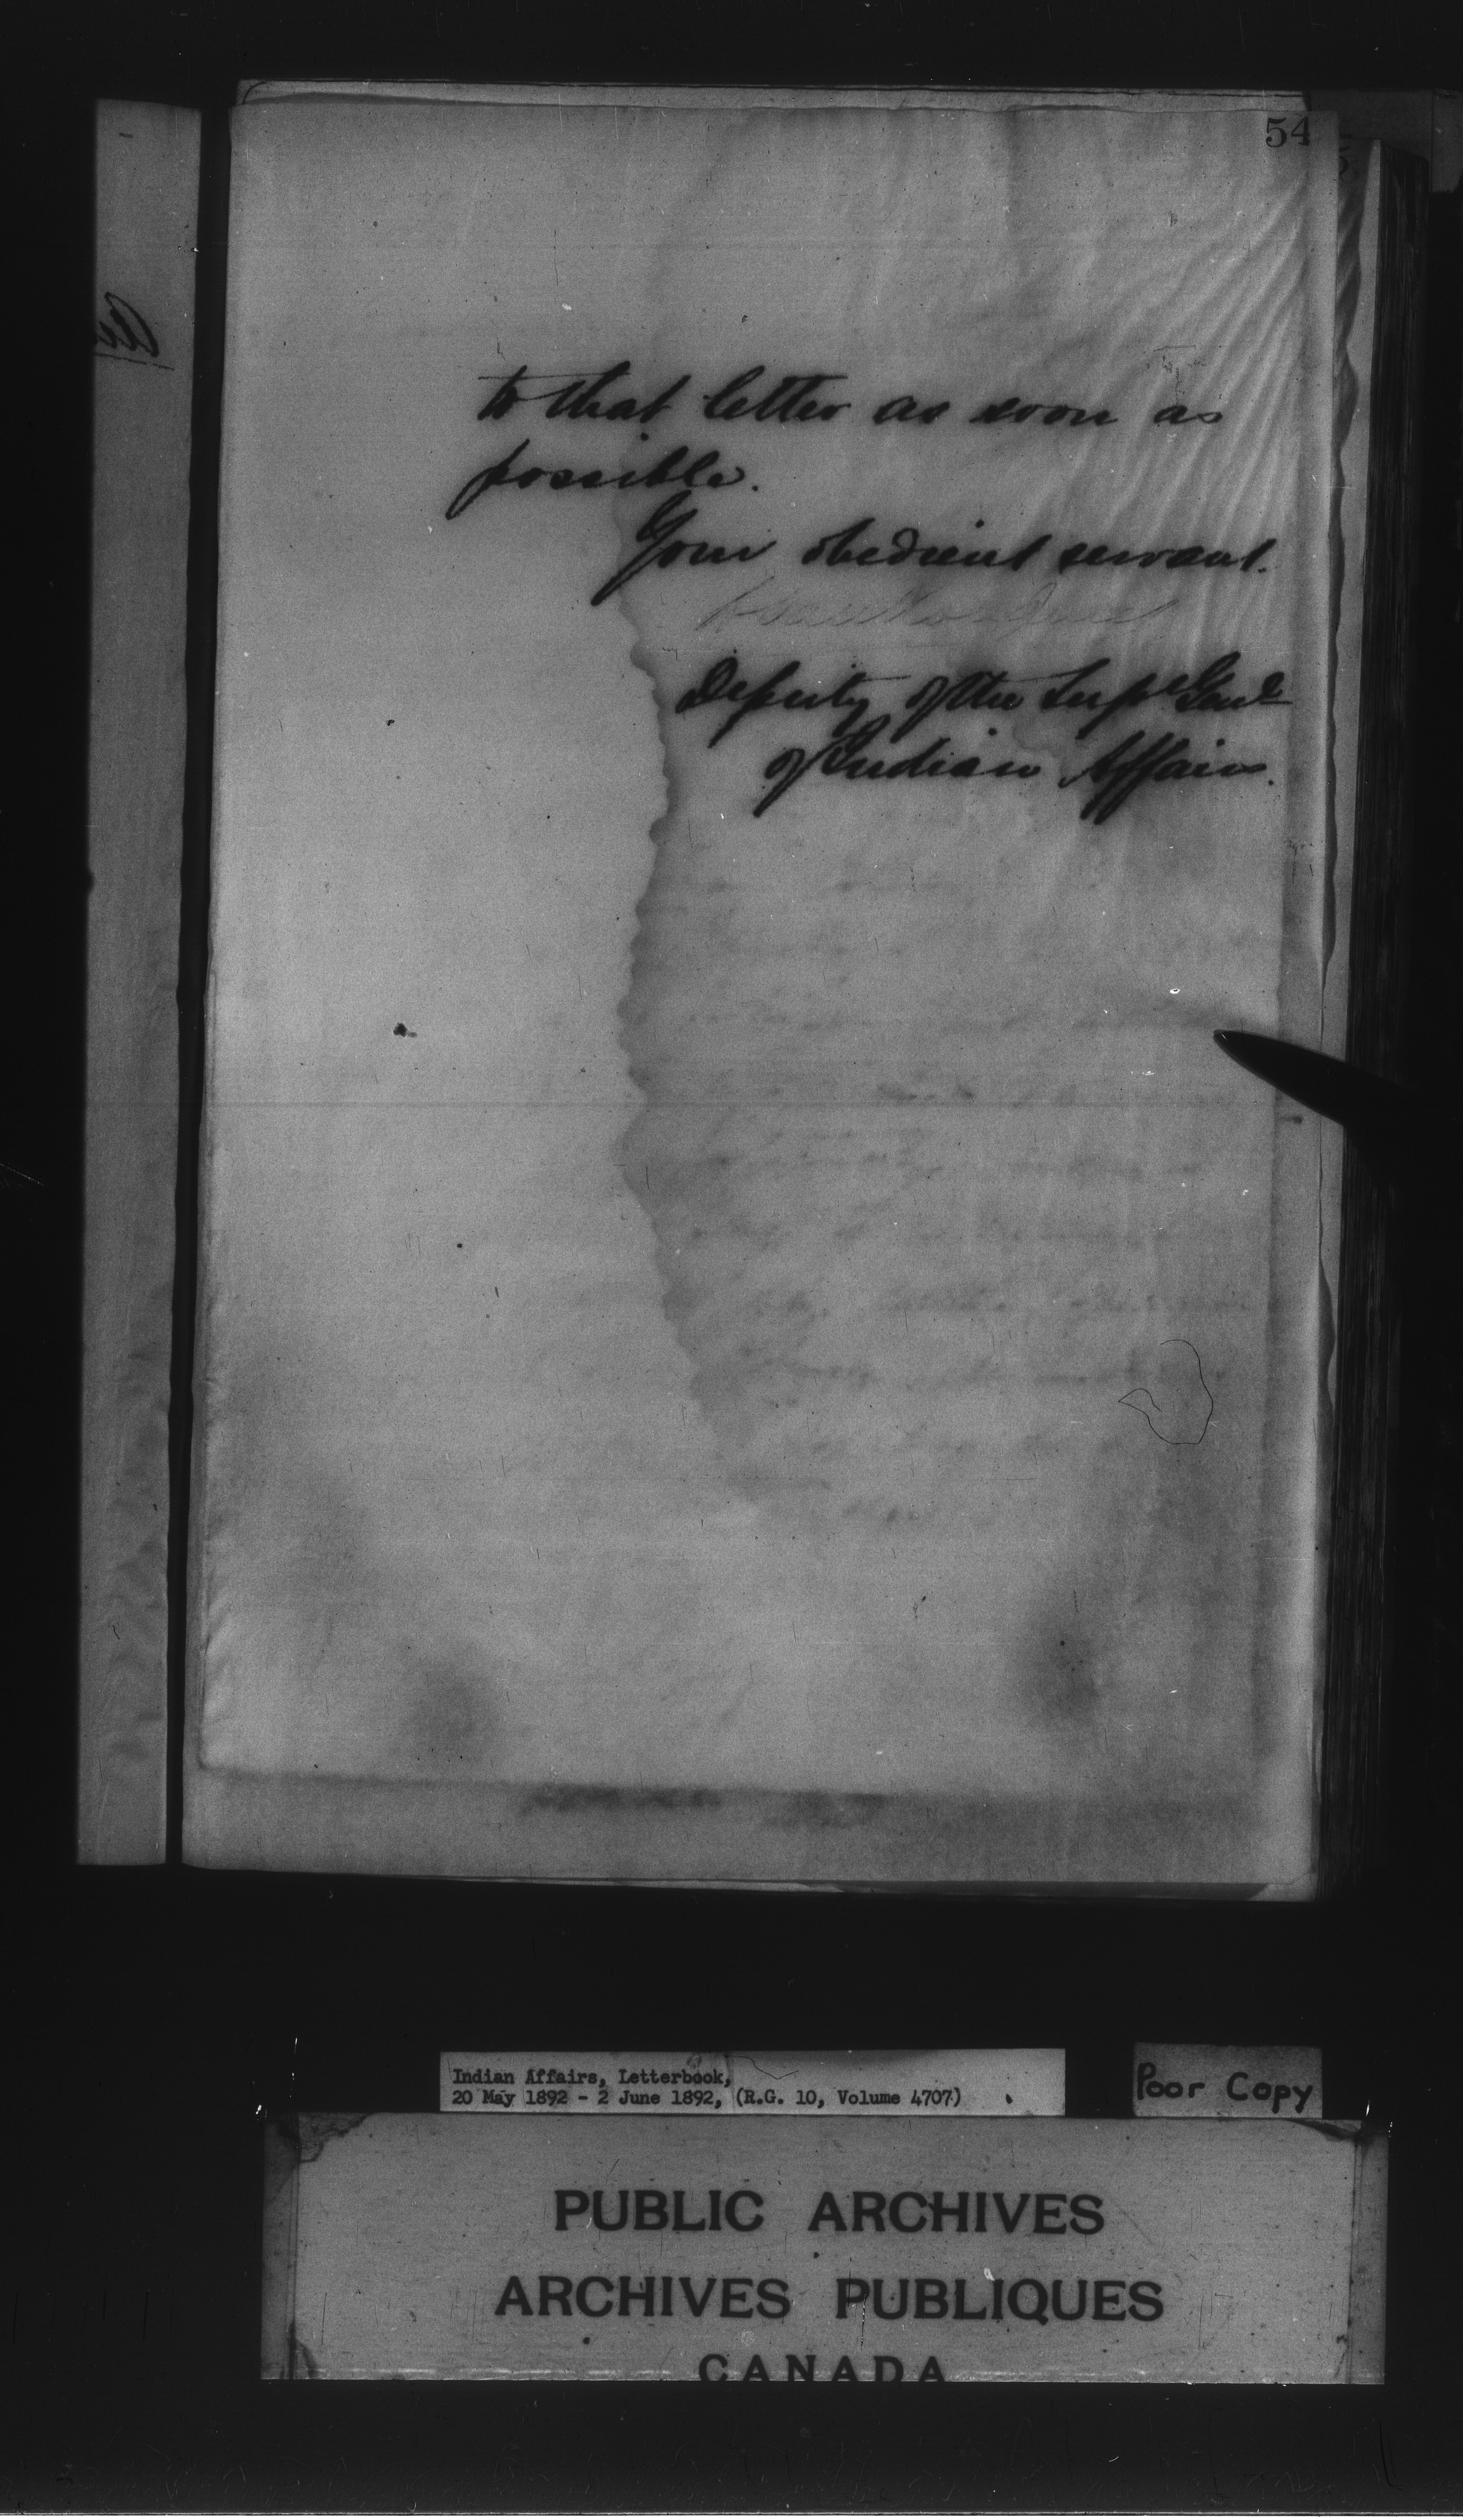 54
to that letter as soon as
possible.
Your obedient servant.
Deputy of the Supt Genl
of Indian Affairs.
Indian Affairs, Letterbook,
20 May 1892 - 2 June 1892, (R.G. 10, Volume 4707)
Poor Copy
PUBLIC ARCHIVES
ARCHIVES PUBLIQUES
CANADA